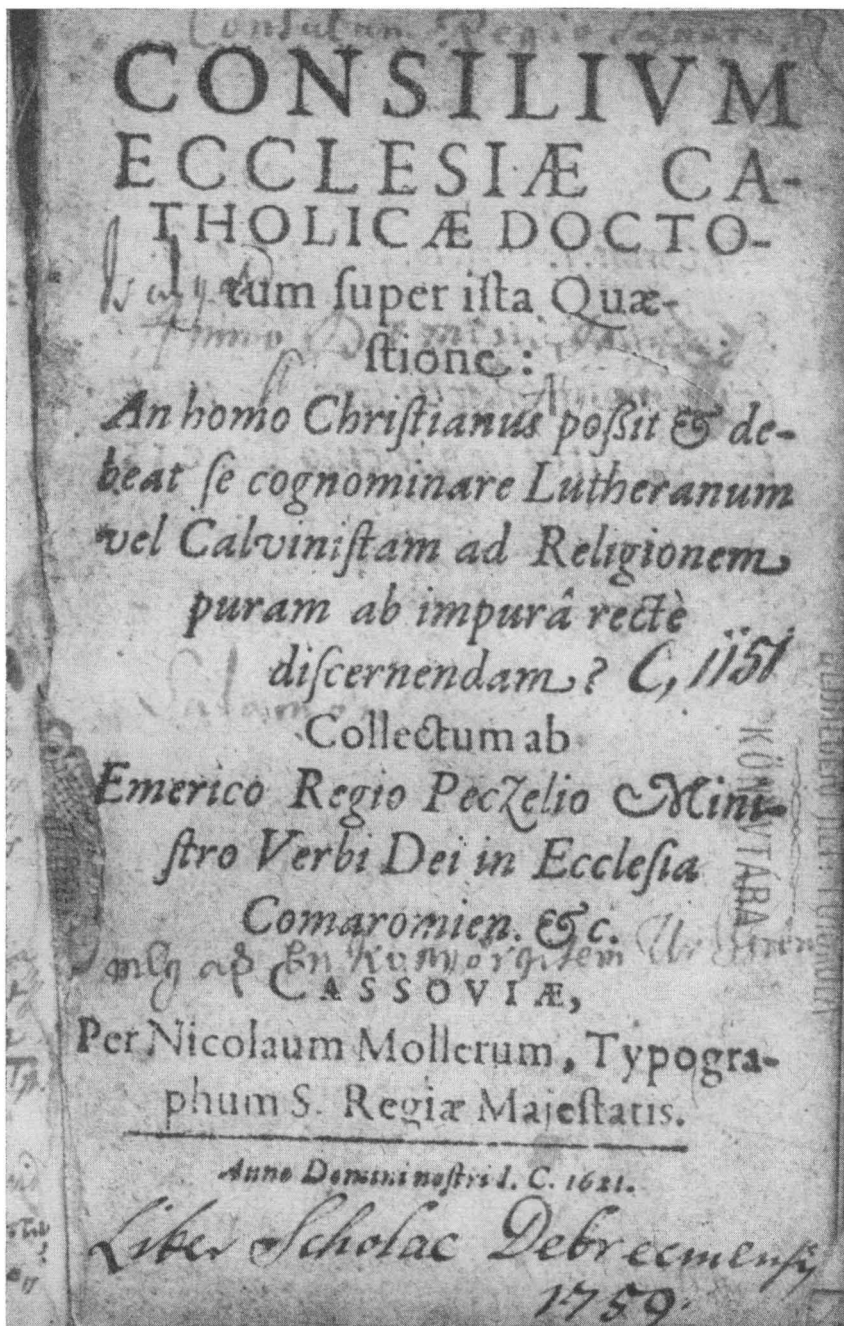 CONSILIVM
ECCLESIÆ CA-
THOLICÆ DOCTO-
rum ſuper iſta Quæ-
ſtione:
An homo Chriſtianus poßit & de-
beat ſe cognominare Lutheranum
vel Calviniſtam ad Religionem
puram ab impurâ rectè
diſcernendam? C, 1151
Collectum ab
Emerico Regio Peczelio Mini-
ſtro Verbi Dei in Eccleſia
Comaromien. &c.
CASSOVIÆ,
Per Nicolaum Mollerum, Typogra-
phum S. Regiæ Majeſtatis.
Anno Domini noſtri I. C. 1621.
Liber Scholae Debrecinensis
1759.
KÖNYVTÁRA